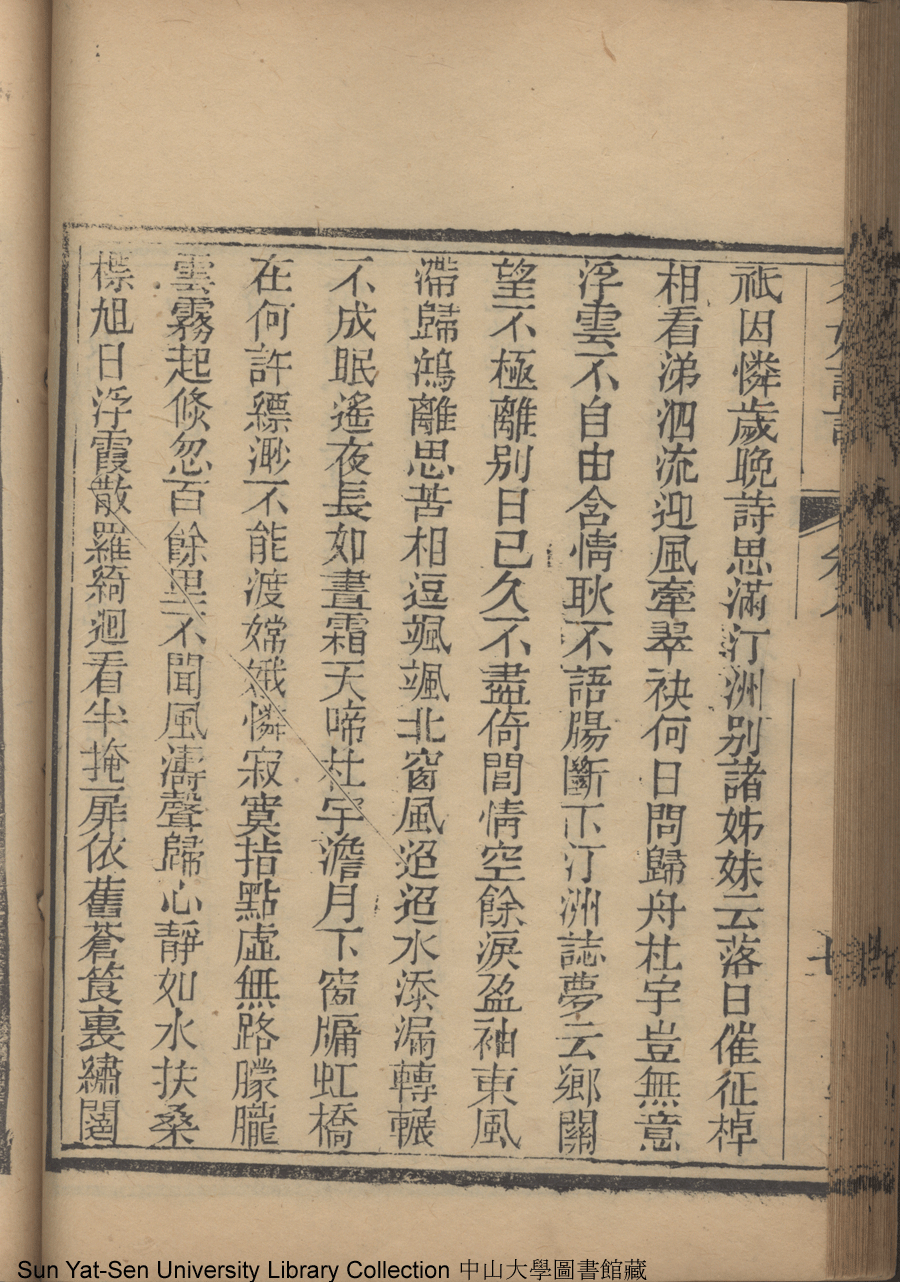 祗因憐歲晚詩思滿汀洲别諸姊妹云落日催征棹
相看涕泗流迎風牽翠袂何日問歸舟杜宇豈無意
浮雲不自由含情耿不語腸斷下汀洲誌夢云鄉關
望不極離别日已久不盡倚閭情空餘淚盈袖東風
滯歸鴻離思苦相逗颯颯北窗風迢迢水添漏轉輾
不成眠遙夜長如晝霜天啼杜宇澹月下窗牖虹橋
在何許縹渺不能渡嫦娥憐寂寞指點虛無路朦朧
雲霧起倐忽百餘里不聞風濤聲歸心靜如水扶桑
標旭日浮霞散羅綺迴看半掩扉依舊蒼筤裏繡闥
Sun Yat-Sen University Library Collection 中山大學圖書館藏